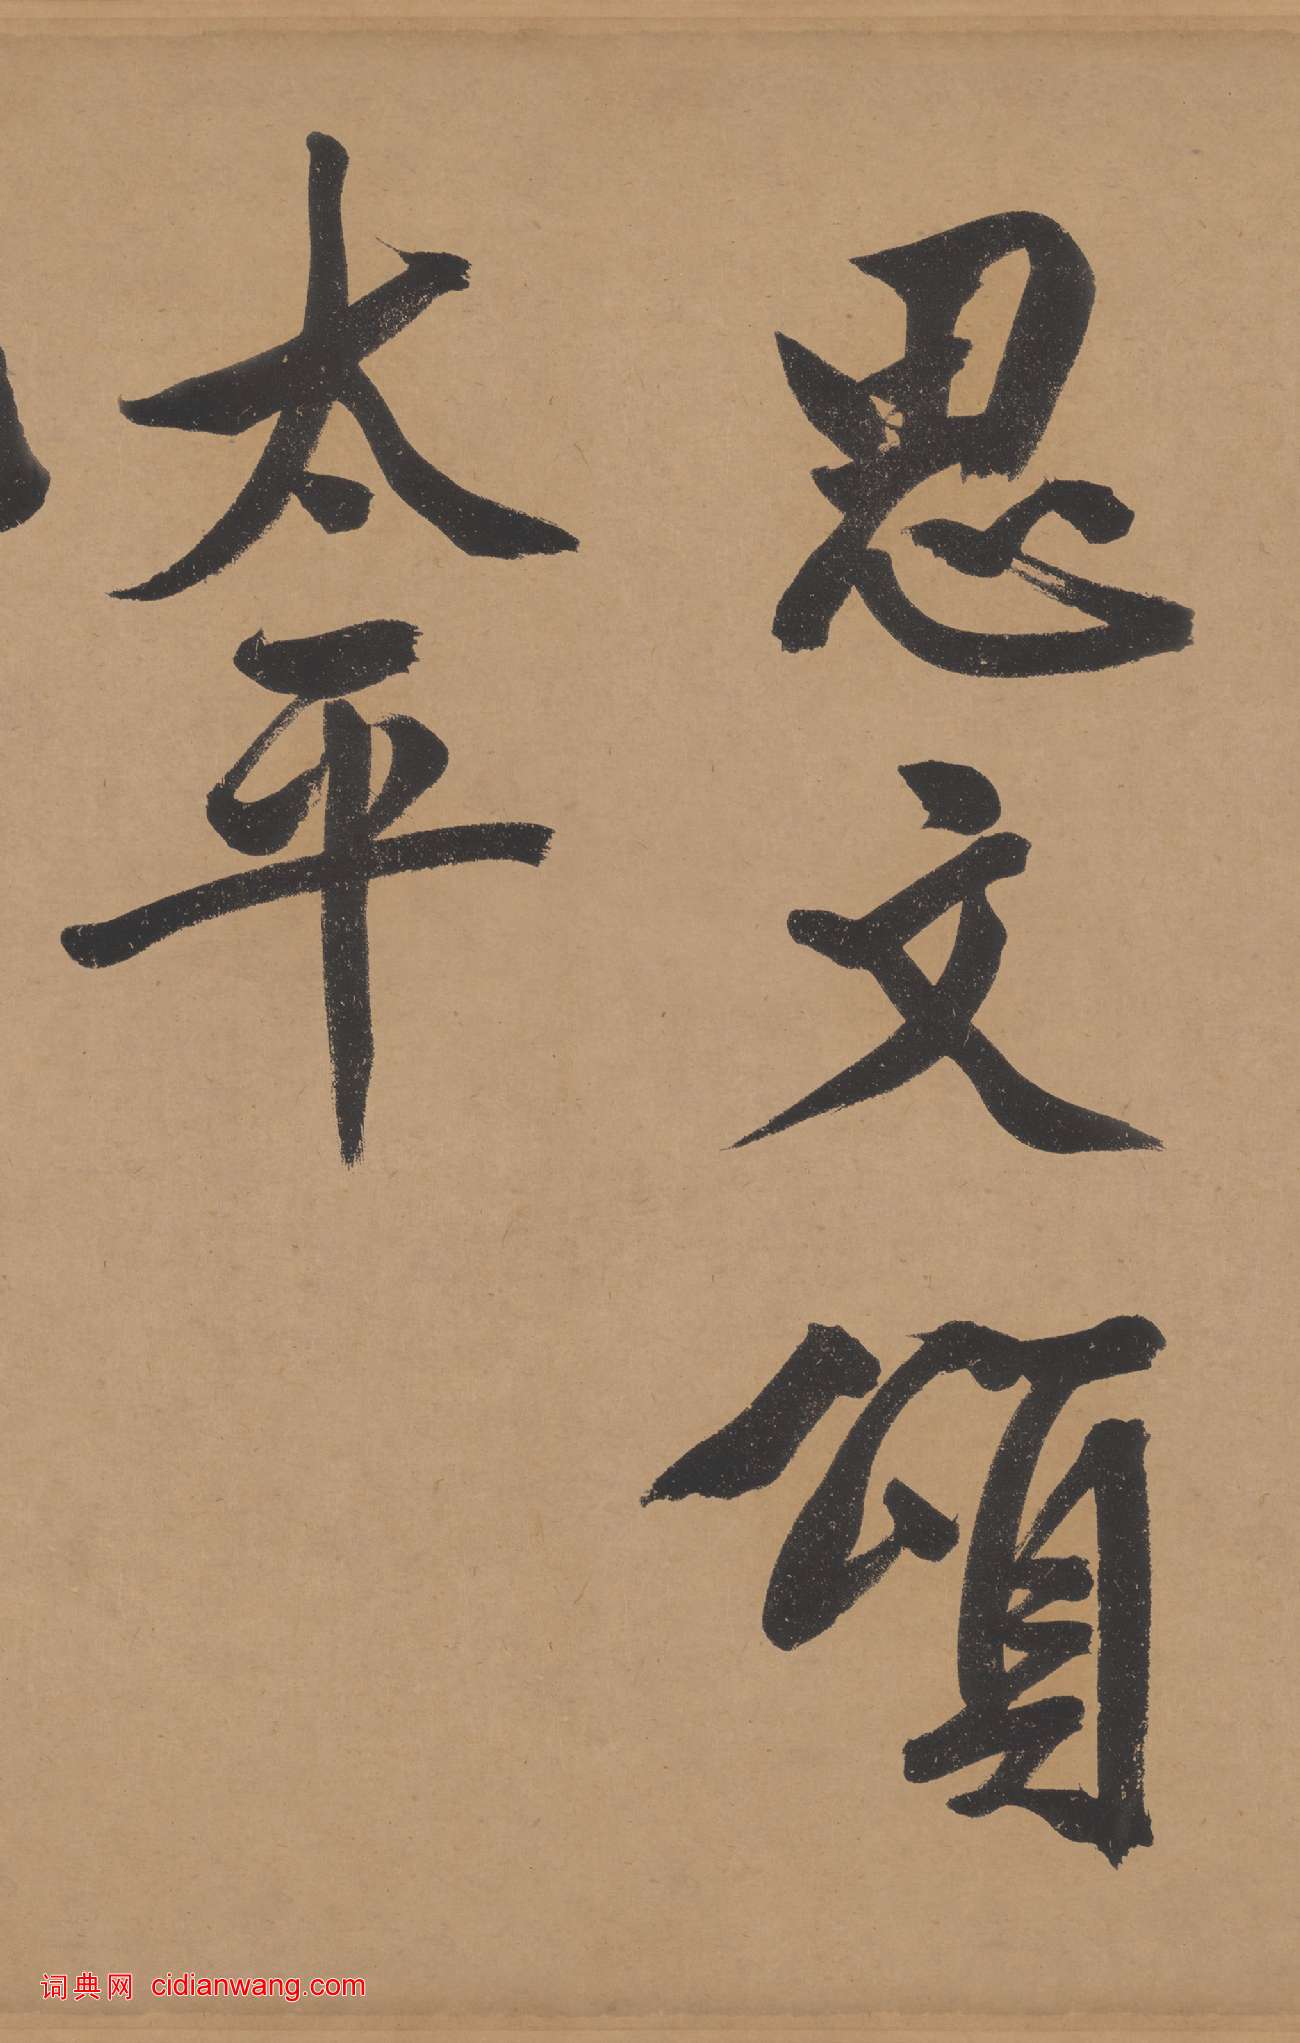 思文頌
太平
词典网 cidianwang.com